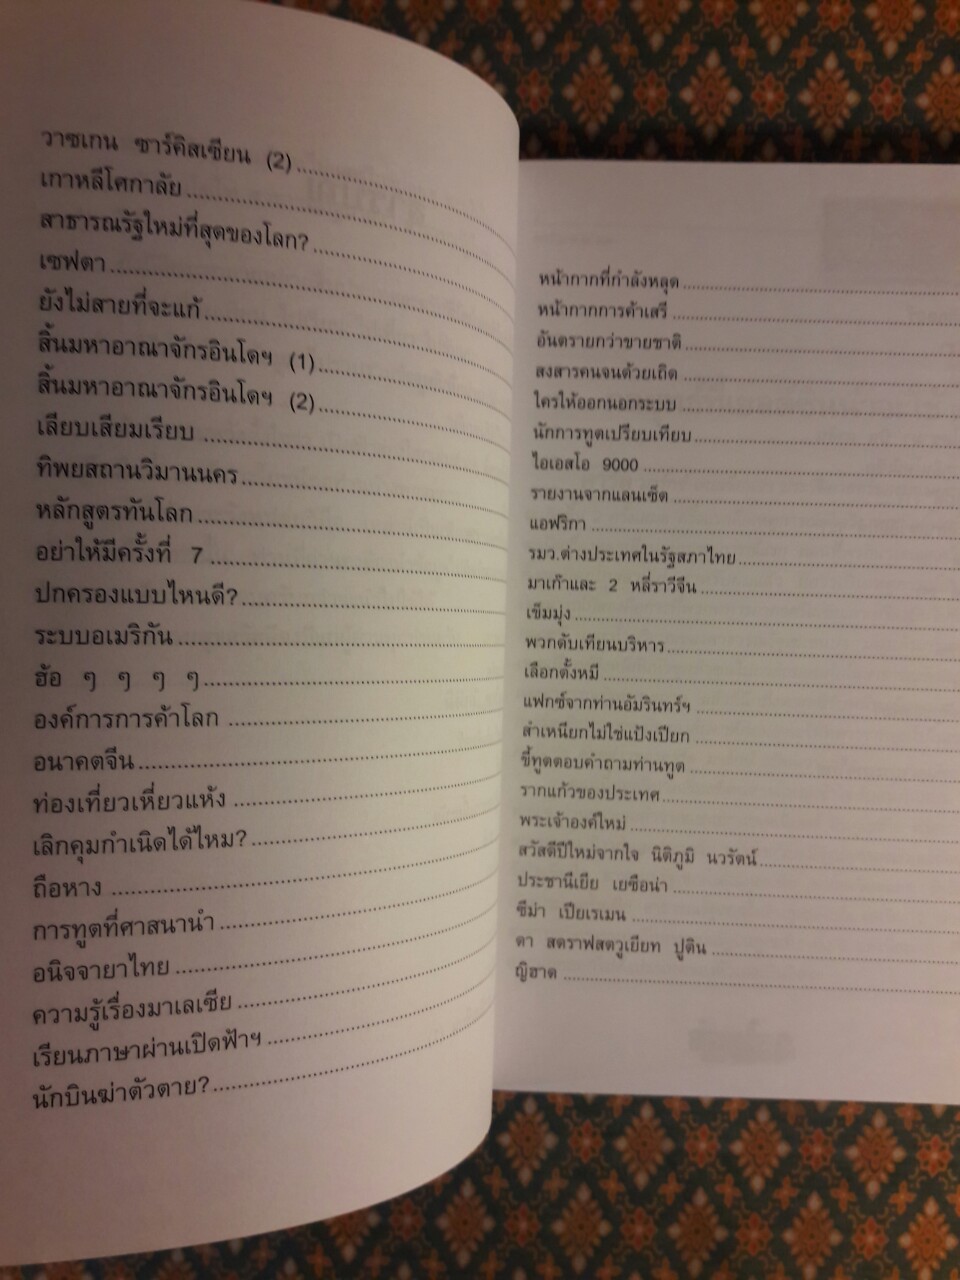 วาซเกน ซาร์คิสเซียน (2)
เกาหลีโศกาลัย
สาธารณรัฐใหม่ที่สุดของโลก?
เซฟตา
ยังไม่สายที่จะแก้
สิ้นมหาอาณาจักรอินโดฯ (1)
สิ้นมหาอาณาจักรอินโดฯ (2)
เลียบเสียมเรียบ
ทิพยสถานวิมานนคร
หลักสูตรทันโลก
อย่าให้มีครั้งที่ 7
ปกครองแบบไหนดี?
ระบบอเมริกัน
ฮ้อ ๆ ๆ ๆ ๆ
องค์การการค้าโลก
อนาคตจีน
ท่องเที่ยวเหี่ยวแห้ง
เลิกคุมกำเนิดได้ไหม?
ถือหาง
การทูตที่ศาสนานำ
อนิจจายาไทย
ความรู้เรื่องมาเลเซีย
เรียนภาษาผ่านเปิดฟ้าฯ
นักบินฆ่าตัวตาย?
หน้ากากที่กำลังหลุด
หน้ากากการค้าเสรี
อันตรายกว่าขายชาติ
สงสารคนจนด้วยเถิด
ใครให้ออกนอกระบบ
นักการทูตเปรียบเทียบ
ไอเอสโอ 9000
รายงานจากแลนเซ็ต
แอฟริกา
รมว.ต่างประเทศในรัฐสภาไทย
มาเก๊าและ 2 หลี่ราวีจีน
เข็มมุ่ง
พวกดับเทียนบริหาร
เลือกตั้งหมี
แฟกซ์จากท่านอัมรินทร์ฯ
สำเหนียกไม่ใช่แป้งเปียก
ขี้ทูตตอบคำถามท่านทูต
รากแก้วของประเทศ
พระเจ้าองค์ใหม่
สวัสดีปีใหม่จากใจ นิติภูมิ นวรัตน์
ประชานีเยีย เยซือน่า
ซีม่า เปียเรเมน
ดา สดราฟสตวูเยียท ปูติน
ญิฮาด